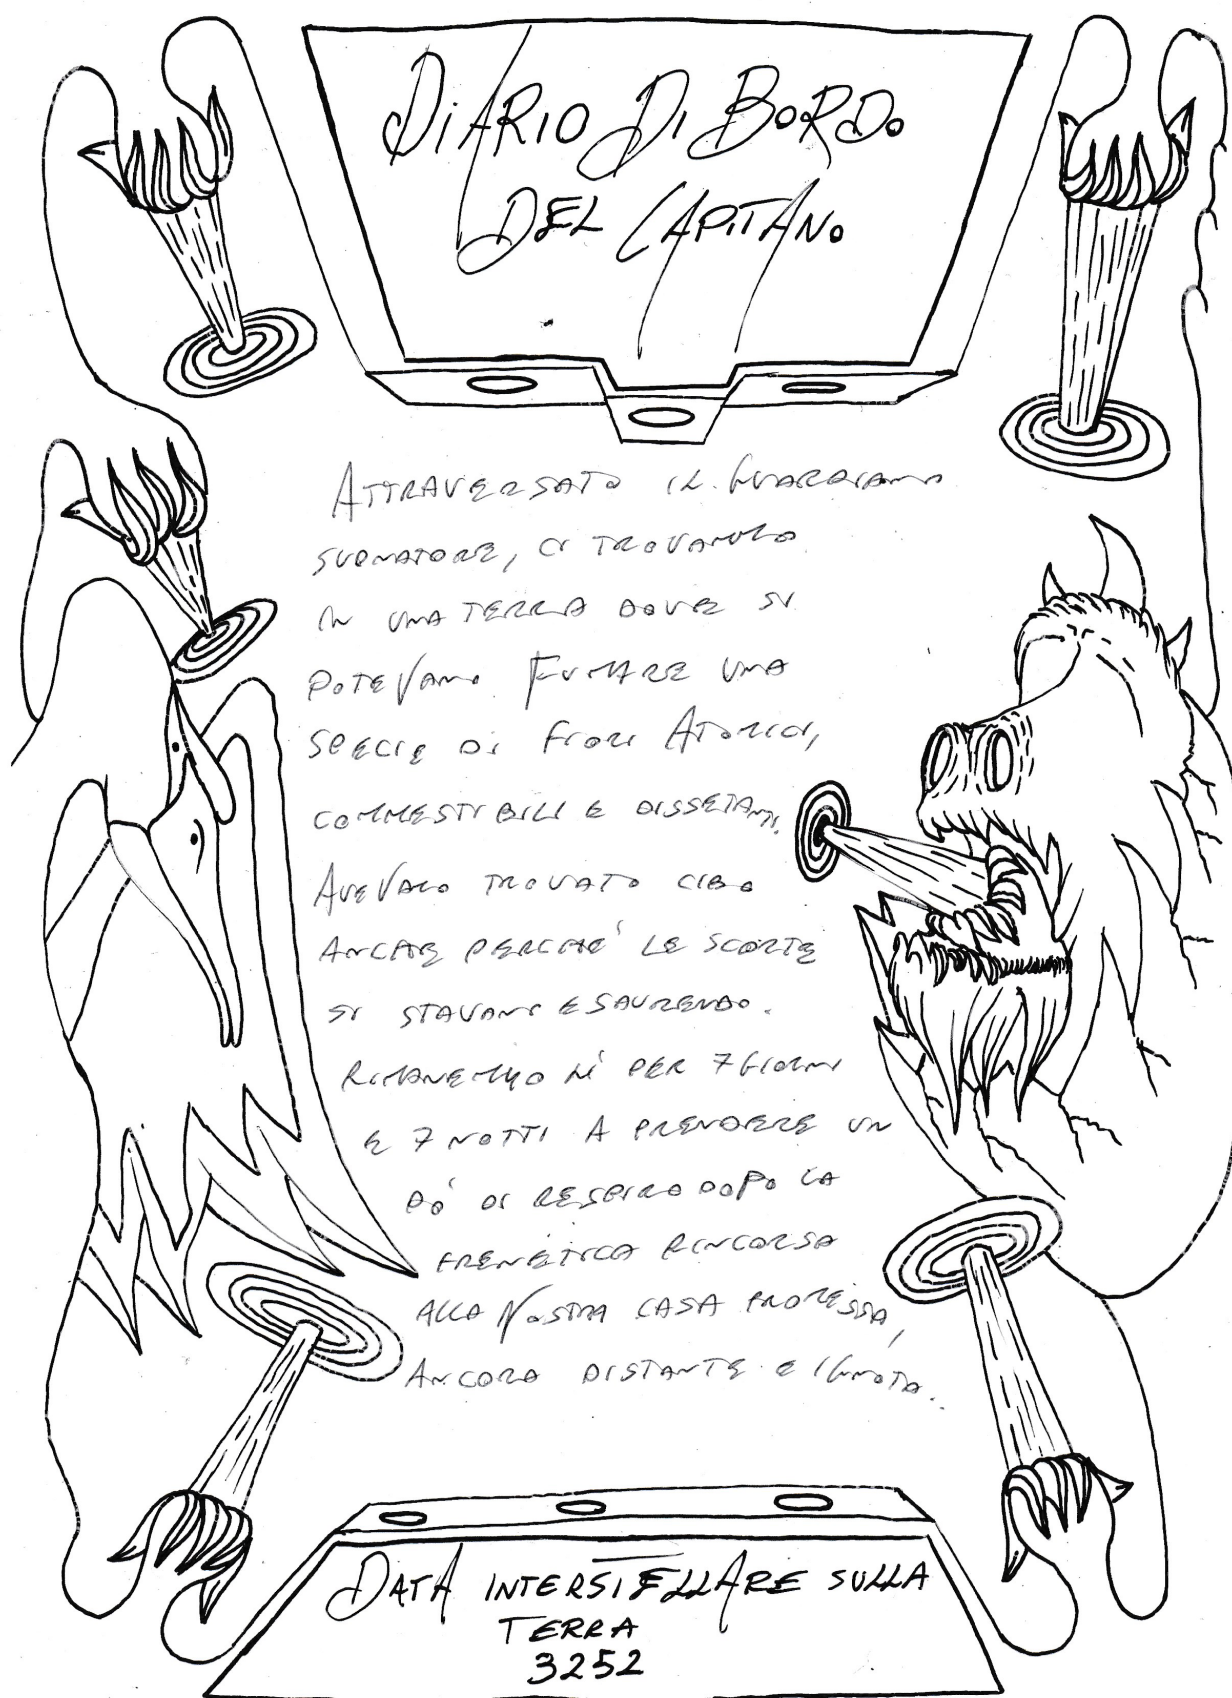 DIARIO DI BORDO
DEL CAPITANO
ATTRAVERSATO IL GUARDIANO
SUONATORE, CI TROVAMMO
IN UNA TERRA DOVE SI
POTEVANO FUMARE UNA
SPECIE DI FIORI ATOMICI,
COMMESTIBILI E DISSETANTI.
AVEVAMO TROVATO CIBO
ANCHE PERCHÉ LE SCORTE
SI STAVANO ESAURENDO.
RIMANEMMO LÌ PER 7 GIORNI
E 7 NOTTI A PRENDERE UN
PÒ DI RESPIRO DOPO LA
FRENETICA RINCORSA
ALLA NOSTRA CASA PROMESSA,
ANCORA DISTANTE E IGNOTA..
DATA INTERSTELLARE SULLA
TERRA
3252